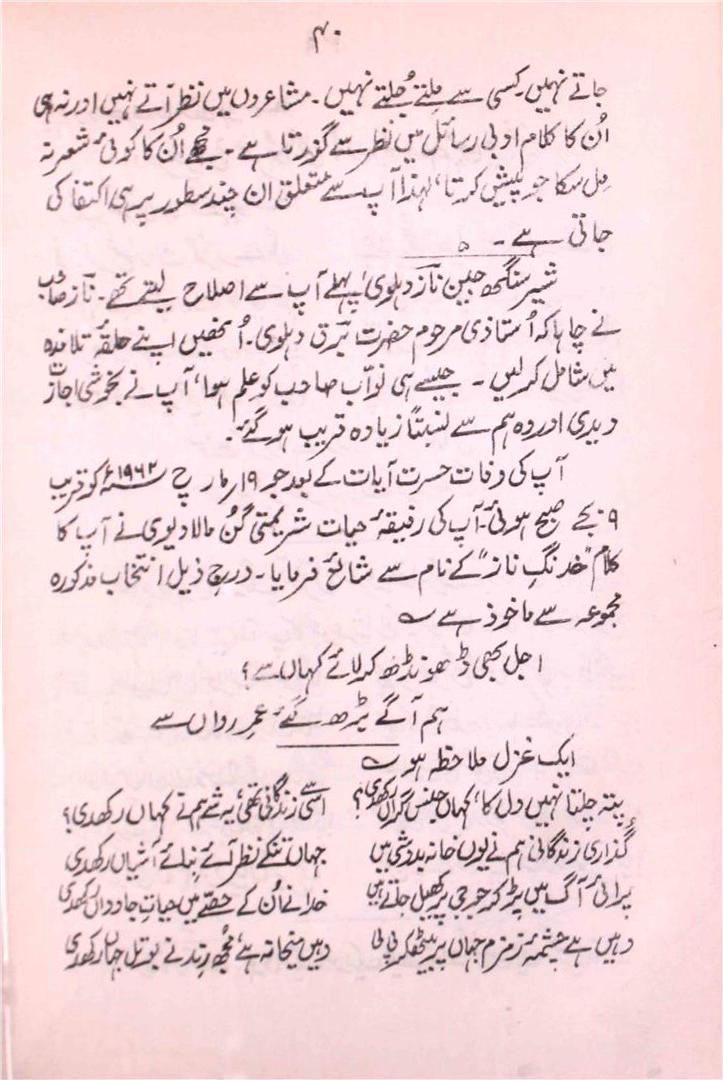 ۴۰
جاتے نہیں۔ کسی سے ملتے جُلتے نہیں۔ مشاعروں میں نظر آتے نہیں اور نہ ہی
اُن کا کلام ادبی رسائل میں نظر سے گزرتا ہے۔ مجھے اُن کا کوئی شعر نہ
مِل سکا جو پیش کرتا، لہٰذا آپ سے متعلق ان چند سطور پر ہی اکتفا کی
جاتی ہے۔
شیر سنگھ جین نازؔ دہلوی، پہلے آپ سے اصلاح لیتے تھے۔ نازؔ صاحب
نے چاہا کہ اُستاذی مرحوم حضرت برقؔ دہلوی۔ اُنھیں اپنے حلقۂ تلامذہ
میں شامل کر لیں۔ جیسے ہی نوابؔ صاحب کو علم ہوا، آپ نے بخوشی اجازت
دیدی اور وہ ہم سے نسبتاً زیادہ قریب ہو گئے۔
آپ کی وفات حسرت آیات کے بعد جو ۱۹ر مارچ ۱۹۶۲ء کو قریب
۹ بجے صبح ہوئی۔ آپ کی رفیقۂ حیات شریمتی گُن مالا دیوی نے آپ کا
کلام "خدنگِ ناز" کے نام سے شائع فرمایا۔ درج ذیل انتخاب مذکورہ
مجموعہ سے ماخوذ ہے ؎
اجل بھی ڈھونڈھ کر لائے کہاں سے؟
ہم آگے بڑھ گئے عمرِ رواں سے
ایک غزل ملاحظہ ہو ؎
پتہ چلتا نہیں دل کا، کہاں جنسِ گراں رکھدی؟ اسی سے زندگانی تھی، یہ شے ہم نے کہاں رکھدی؟
گذاری زندگانی ہم نے یوں خانہ بدوشی میں جہاں تنکے نظر آئے، بنائے آشیاں رکھدی
پرائی آگ میں پڑ کر جو جی پر کھیل جاتے ہیں خدا نے اُن کے حصّے میں حیاتِ جاوداں رکھدی
وہیں ہے چشمۂ زمزم جہاں پر بیٹھ کر پی لی وہیں میخانہ ہے، مُجھ رِند نے بوتل جہاں رکھدی